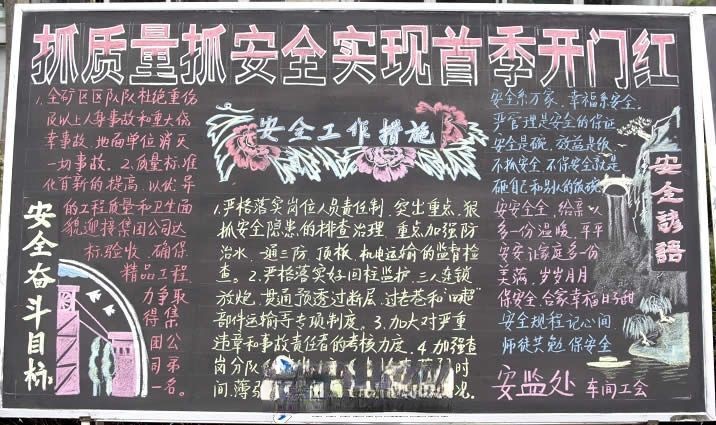 抓质量抓安全实现首季开门红
1.全矿区区队队杜绝重伤
及以上人身事故和重大侥
幸事故.地面单位消灭
一切事故.2.质量标准
化有新的提高.以优异
的工程质量和卫生面
貌迎接集团公司达
标验收.确保
精品工程.
力争取
得集
团公
司第
一名。
安全奋斗目标
安全工作措施
1.严格落实岗位人员责任制.突出重点.狠
抓安全隐患的排查治理.重点加强防
治水.一通三防.顶板.机电运输的监督检
查。2.严格落实好回柱监护.三人连锁
放炮.贯通预透过断层.过老巷和"四超"
部件运输等专项制度。3.加大对严重
违章和事故责任者的考核力度。4.加强查
岗分队
时
间.薄弱
况.
安全系万家.幸福系安全.
严管理是安全的保证
安全是碗.效益是饭
不抓安全.不保安全就是
砸自己和别人的饭碗
安安全全.给亲人
多一份温暖.平平
安安让家庭多一份
美满.岁岁月月
保安全.合家幸福日子甜
安全规程记心间
师徒共勉保安全
安全谚语
安监处 车间工会